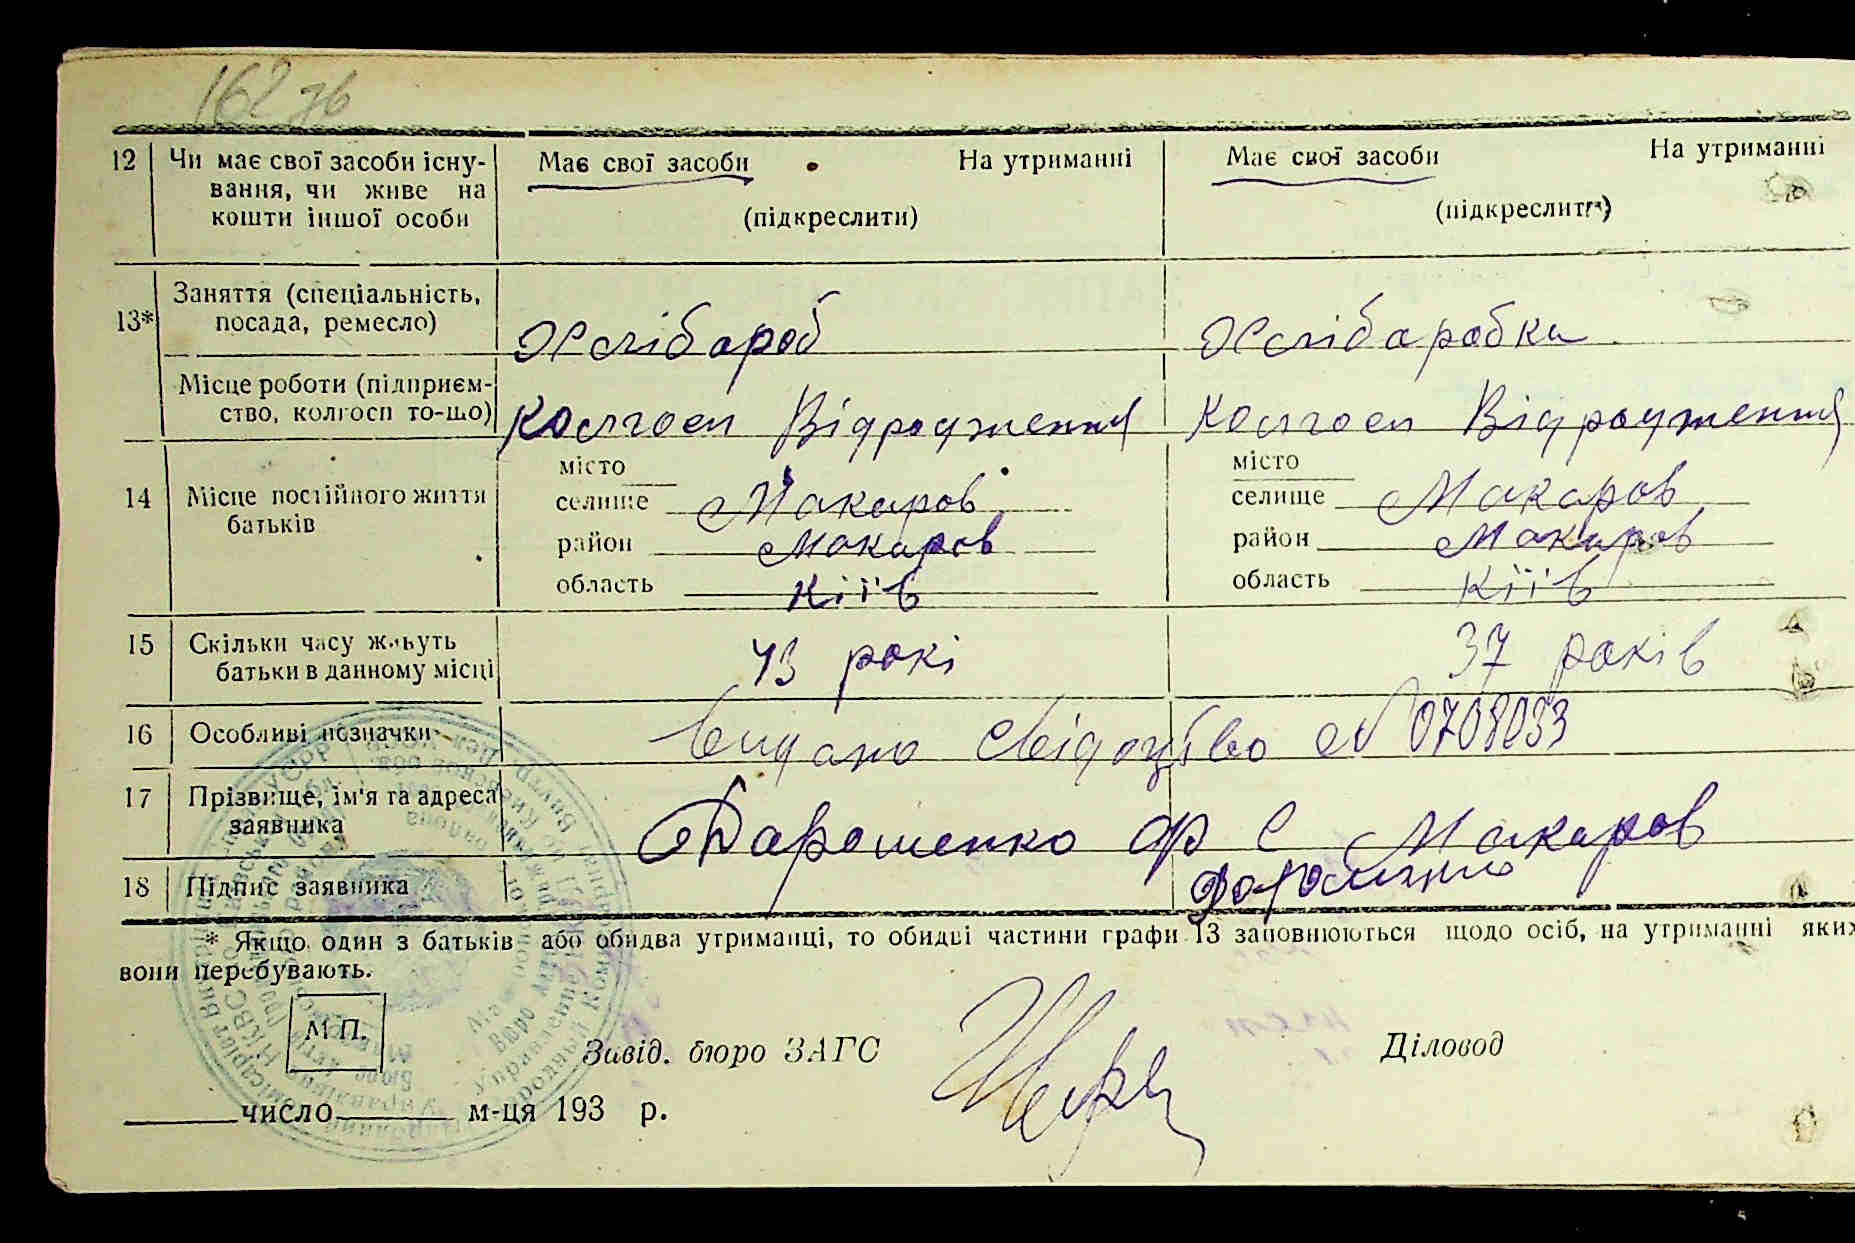 162 зв
12 Чи має свої засоби існу- Має свої засоби На утриманні Має свої засоби На утриманні
вання, чи живе на
кошти іншої особи (підкреслити) (підкреслити)
Заняття (спеціальність,
13* посада, ремесло) Хлібароб Хлібаробка
Місце роботи (підприєм-
ство, колгосп то-що) Колгосп Відродження Колгосп Відродження
місто місто
14 Місце постійного життя селище Макаров селище Макаров
батьків район Макаров район Макаров
область Київ область Київ
15 Скільки часу живуть
батьки в данному місці 43 рокі 37 років
16 Особливі позначки Видано свідоцтво № 0708093
17 Прізвище, ім'я та адреса
заявника Дарошенко Ф С Макаров
18 Підпис заявника
* Якщо один з батьків або обидва утриманці, то обидві частини графи 13 заповнюються щодо осіб, на утриманні яких
вони перебувають.
М.П.
Завід. бюро ЗАГС Діловод
число м-ця 193 р.